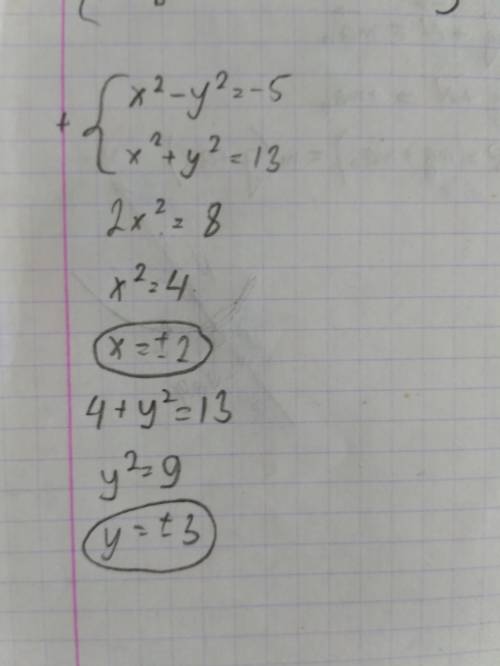 x² - y² = -5
+
x² + y² = 13
2x² = 8
x² = 4
x = ±2
4 + y² = 13
y² = 9
y = ±3